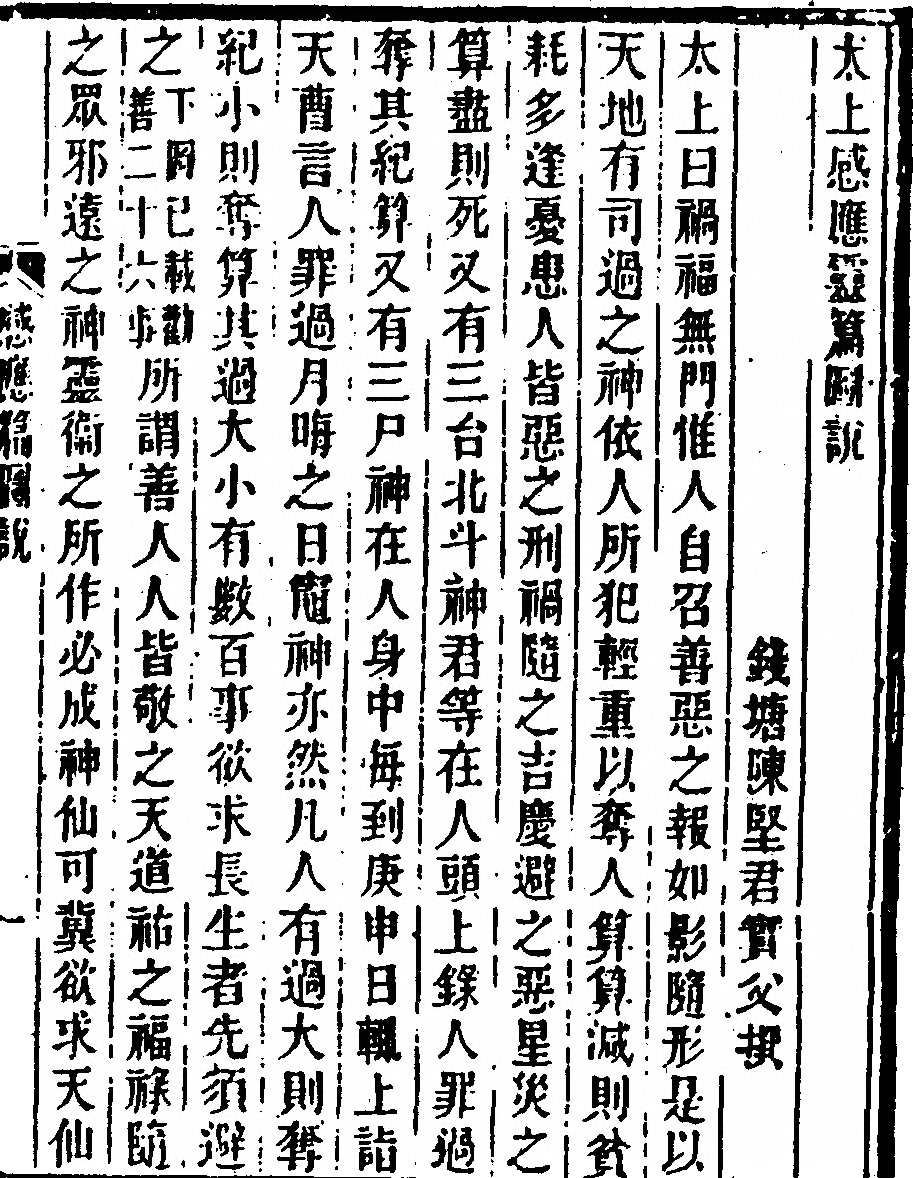 太上感應靈篇圖說
錢塘陳堅君實父撰
太上曰禍福無門惟人自召善惡之報如影隨形是以
天地有司過之神依人所犯輕重以奪人算算減則貧
耗多逢憂患人皆惡之刑禍隨之吉慶避之惡星災之
算盡則死又有三台北斗神君等在人頭上錄人罪過
奪其紀算又有三尸神在人身中每到庚申日輒上詣
天曹言人罪過月晦之日竈神亦然凡人有過大則奪
紀小則奪算其過大小有數百事欲求長生者先須避
之下圖已載勸善二十六事所謂善人人皆敬之天道祐之福祿隨
之眾邪遠之神靈衛之所作必成神仙可冀欲求天仙
感應篇圖說
一